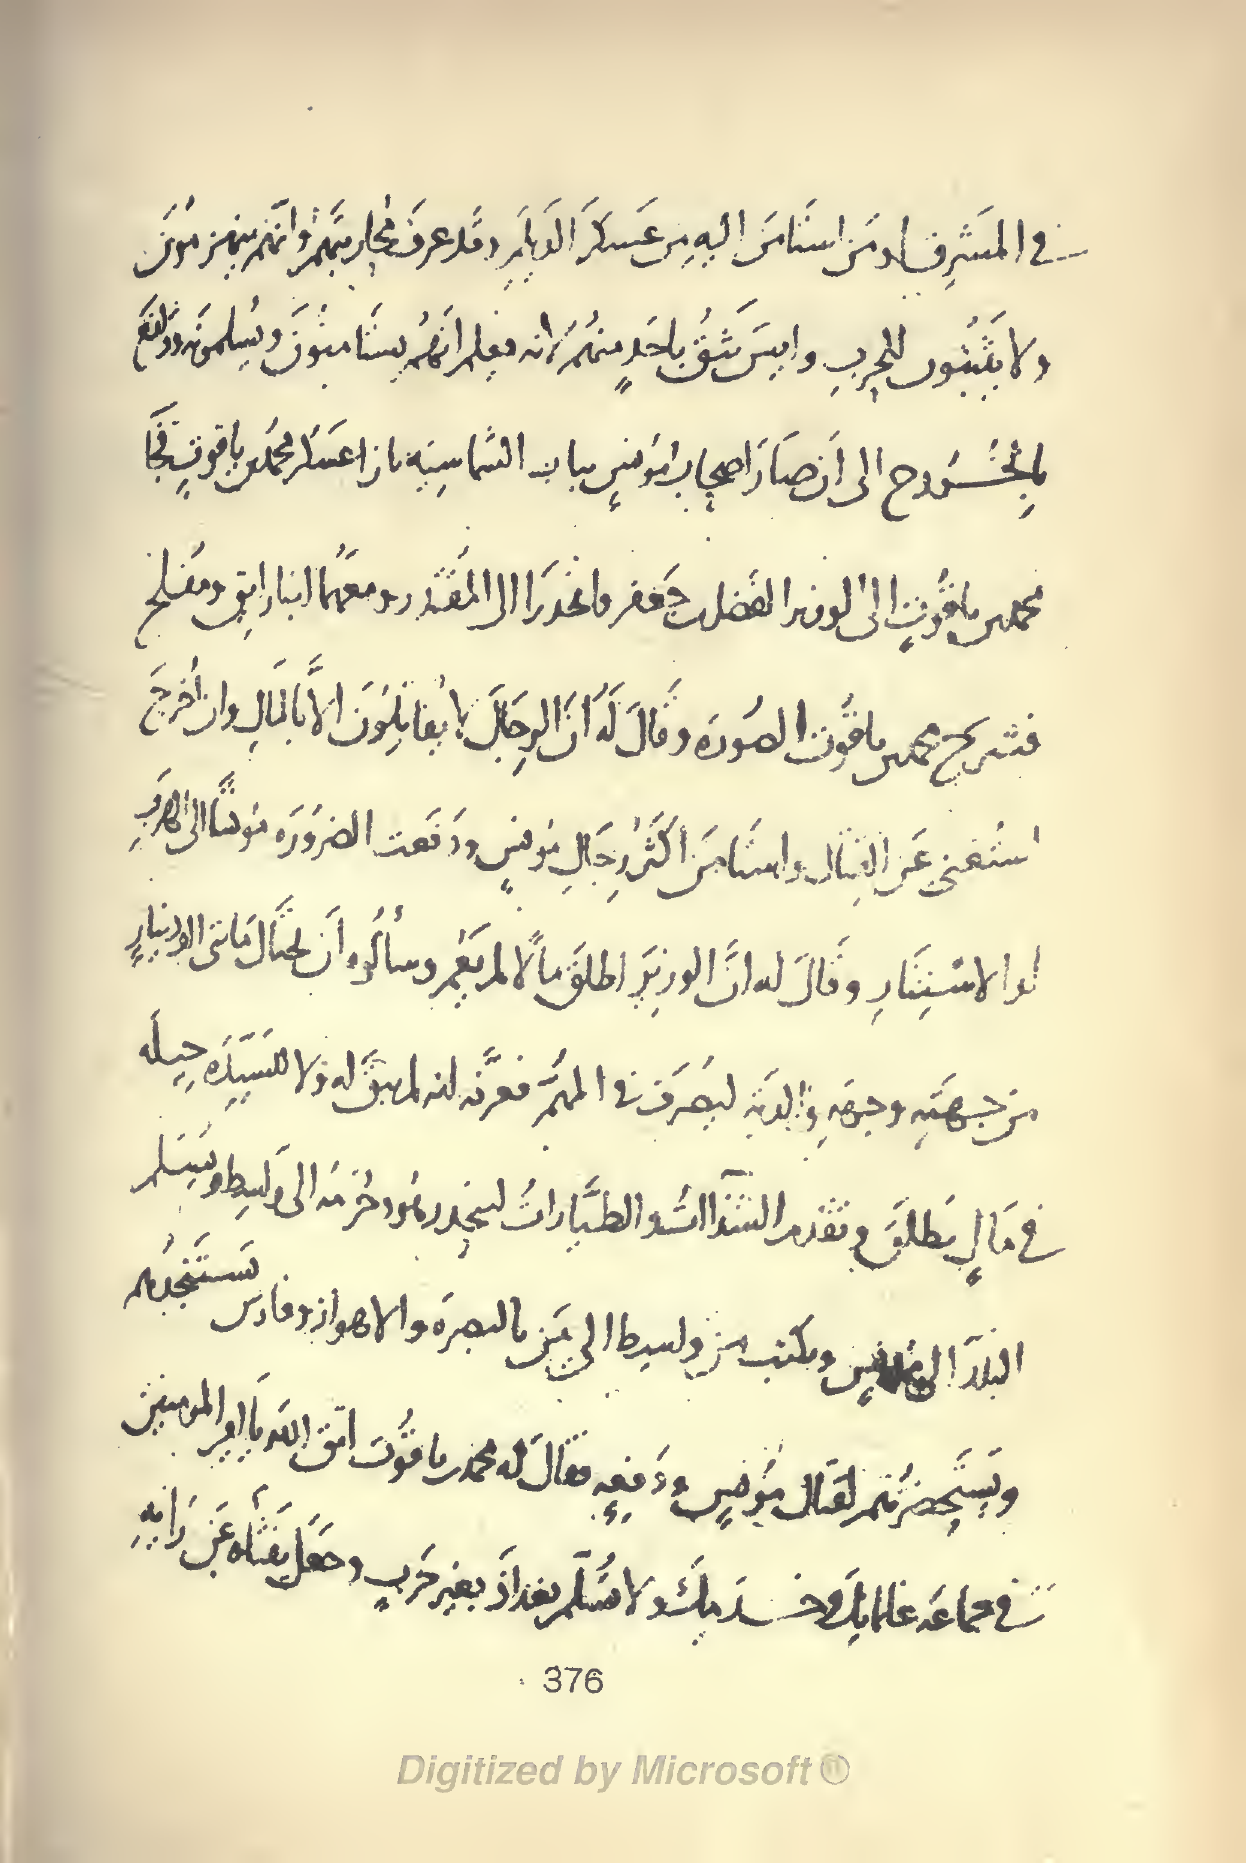 في المشرف اومن استامن اليه من عسكر الديلم وقد عرف محاربتهم وانهم ينهزمون
ولا يثبتون للحرب وليس يثق باحد منهم لانه يعلم انهم يستامنون ويسلمونه ودافع
بالخروج الى ان صار اصحاب مونس بباب الشماسية بازا عسكر محمد بن ياقوت فجا
محمد بن ياقوت الى الوزير الفضل بن جعفر وانحدرا الى المقتدر ومعهما ابنا رايق ومفلح
فشرح محمد بن ياقوت الصورة وقال له ان الرجال لا يقاتلون الا بالمال وان اخرج
استغنى عن القتال واستامن اكثر رجال مونس ودفعت الضرورة مونسا الى الهرب
او الاستتار وقال له ان الوزير اطلق مالا لم يعم وسألوه ان يحتال مائتى الف دينار
من جهته وجهة والدته ليصرف في المهم فعرفه انه لم يبق له ولا للسيدة حيلة
في مال يطلق وتقدم الشذاات والطيارات لينحدر هو وحرمه الى واسط ويسلم
البلد الى مونس ويكتب من واسط الى من بالبصرة والاهواز وفارس يستنجدهم
ويستحضرهم لقتال مونس ودفعه فقال له محمد بن ياقوت اتق الله يا امير المومنين
في جماعة غلمانك وخدمك ولا تسلم بغداذ بغير حرب وجعل يفثاه عن رايه
376
Digitized by Microsoft ®